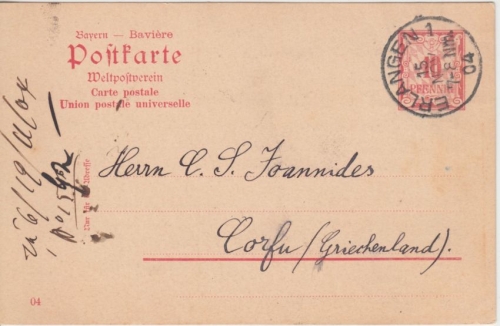 Bayern — Bavière
Postkarte
Weltpostverein
Carte postale
Union postale universelle
ERLANGEN 1
15
7-8 NM
04
10
PFENNIG
Herrn C. S. Ioannides
Corfu (Griechenland).
Nur für die Adresse
04